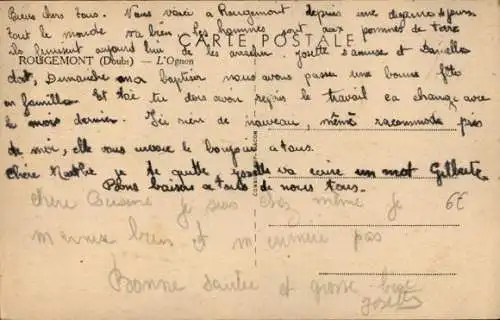 Biens chers tous. Nous voici a Rougemont depuis une dizaine de jours
tout le monde va bien les hommes sont aux pommes de terre
ils finissent aujourd'hui de les arracher. Josette s'amuse et Danielle
CARTE POSTALE
ROUGEMONT (Doubs) — L'Ognon
dort, Dimanche au baptème nous avons passé une bonne fête
en famille. Et toi tu dois avoir repris le travail ca change avec
le mois dernier. Ici rien de nouveau, mémé raccommode près
de moi, elle vous envoie le bonjour a tous.
Chère je te quitte Josette va ecrire un mot Gilberte.
Bons baisers a tous de nous tous.
chère Cousine je suis chez mémé je
6€
m'amuse bien et m'ennuie pas
Bonne santée et grosse bise
Josette